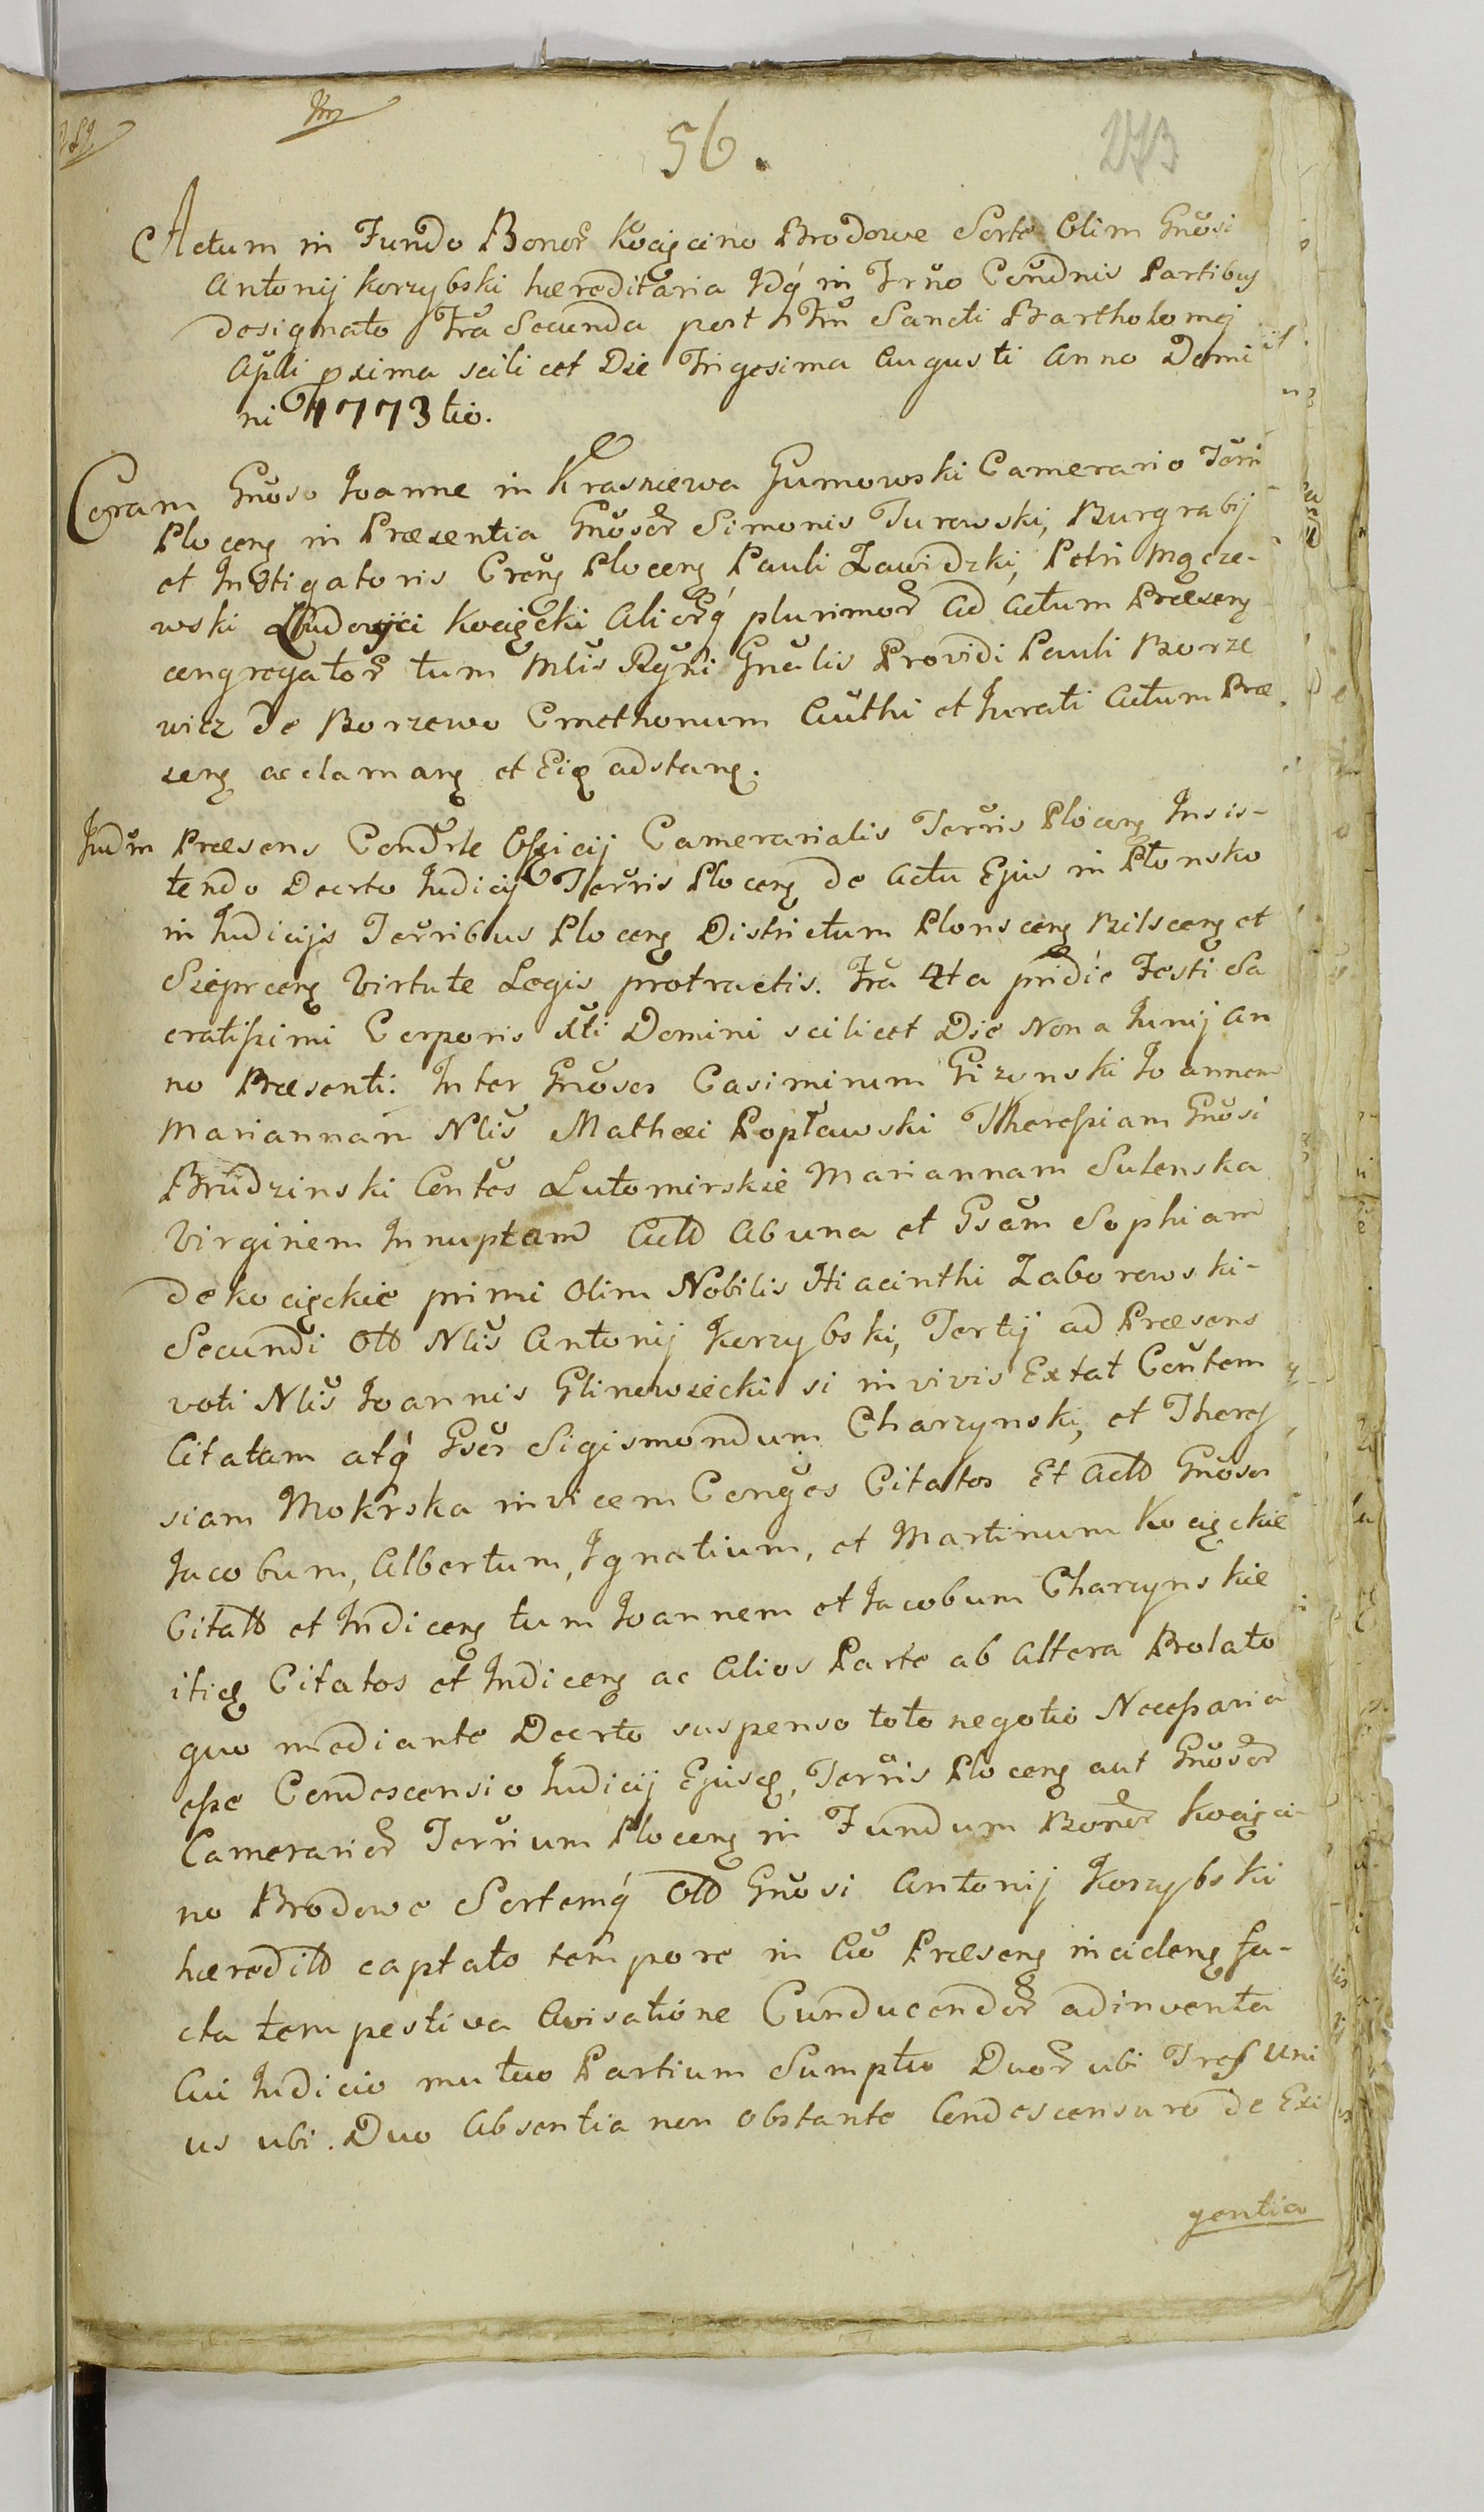 56.
273
Actum in Fundo Bonor Kocięcino Brodowe Sorte Olim Gnosi
Antonij Korzybski hæreditaria Idq́ in Trno Condnis Partibus
designato Fra Secunda post Ftm Sancti Bartholomej
Apli pxima scilicet Die Trigesima Augusti Anno Domi
ni 1773tio.
Coram Gnoso Joanne in Kraszewa Gumowski Camerario Terri
Plocen in Præsentia Gnosor Simonis Turowski, Burgrabij
et Instigatoris Cren Plocen Pauli Zawidzki, Petri Mącze-
wski Ludovici Kocięcki Aliorq́ plurimor ad Actum Præsen
congregator tum Mlis Rgni Gnalis Providi Pauli Borze
wicz de Borzewo Cmethonum Authi et Jurati Actum Præ
sen acclaman et Eiq adstan.
Judm Præsens Condrle Officij Camerarialis Terris Plocen Insis-
tendo Decrto Judicij Terris Plocen de Actu Ejus in Płonsko
in Judicijs Terribus Plocen Districtum Plonscen Bilscen et
Srzeprcen Virtute Legis protractis. Fra 4ta pridie Festi Sa
cratissimi Corporis Xti Domini scilicet Die Nona Junij An
no Præsenti. Inter Gnosos Casimirum Gizynski Joannem
Mariannam Nlis Mathæi Popławski Theressiam Gnosi
Brudzinski Contes Lutomirskie Mariannam Sulenska
Virginem Innuptam Actt Ab una et Gsam Sophiam
de Kocięckie primi Olim Nobilis Hiacinthi Zaborowski-
Secundi Ott Nlis Antonij Korzybski, Tertij ad Præsens
voti Nlis Joannis Glinowiecki si in vivis Extat Contem
Citatam atq́ Gsos Sigismondum Charzynski, et Theres
siam Mokrska invicem Conges Citatos Et Actt Gnosos
Jacobum, Albertum, Ignatium, et Martinum Kocięckie
Citatt et Indicen tum Joannem et Jacobum Charzynskie
itiq Citatos et Indicen ac Alios Parte ab Altera Prolato
quo mediante Decrto suspenso toto negotio Necessaria
esse Condescensio Judicij Ejusq, Terris Plocen aut Gnosor
Camerarior Terrium Plocen in Fundum Bonor Kocięci-
no Brodowe Sortemq́ Ott Gnosi Antonij Korzybski
hæreditt captato tempore in Ao Præsen inciden fa-
cta tempestiva Avisatione Conducendor adinventa
Cui Judicio mutuo Partium Sumptu Duor ubi Tres Uni
us ubi Duo Absentia non obstante Condescensuro de Exi
gentia